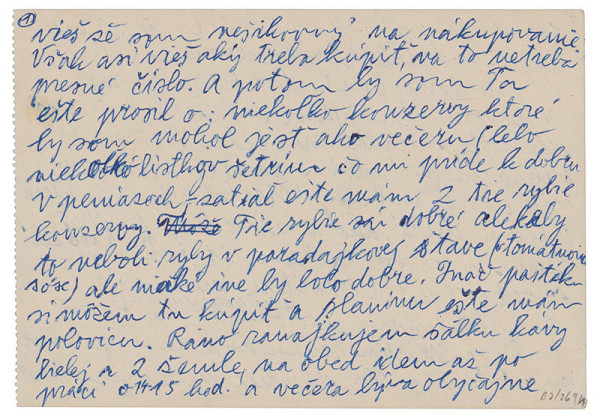 ①
vieš sě som nešikovný na nákupovanie
Však asi vieš aký treba kúpiť, na to netreba
presné číslo. A potom by som Ťa
ešte prosil o: niekoľko konzervy ktoré
by som mohol jèsť ako večeru (lebo
niekoľko lístkov šetrím čo mi príde k dobru
v peniazoch - zatiaľ ešte mám 2 tie rybie
konzervy. Tie rybie sú dobré ale keby
to neboli ryby v paradajkovej štave (tomátovej
sósx) ale niaké iné by bolo dobre. Inač paštéku
si môžem tu kúpiť a slaninu ešte mám
polovicu. Ráno raňajkujem šálku kávy
bielej a 2 žemle, na obed idem až po
práci o 14-15 hod. a večera býva obyčajne